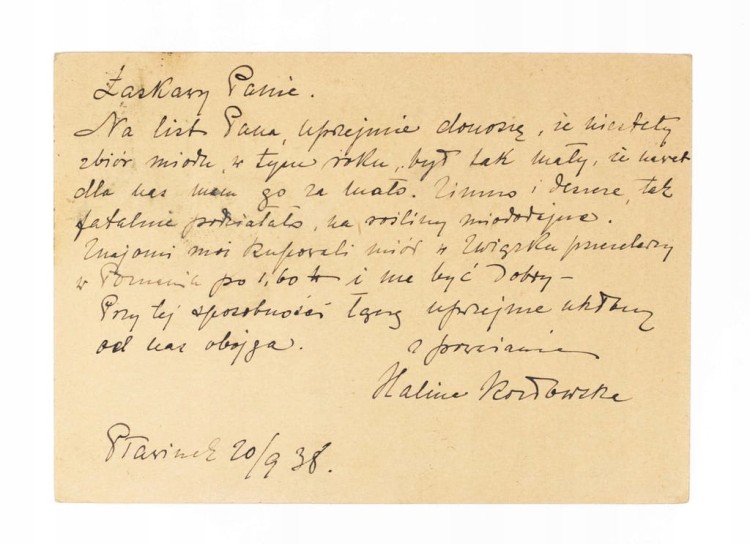 Łaskawy Panie.
Na list Pana, uprzejmie donoszę, że niestety
zbiór miodu, w tym roku, był tak mały, że nawet
dla nas mam go za mało. Zimno i deszcze, tak
fatalnie podziałało, na rośliny miododajne.
Znajomi moi kupowali miód w Związku pszczelarzy
w Poznaniu po 1,60 i ma być dobry –
Przy tej sposobności łączę uprzejme ukłony
od nas obojga.
z poważaniem
Halina Kozłowska
Pławinek 20/9 38.